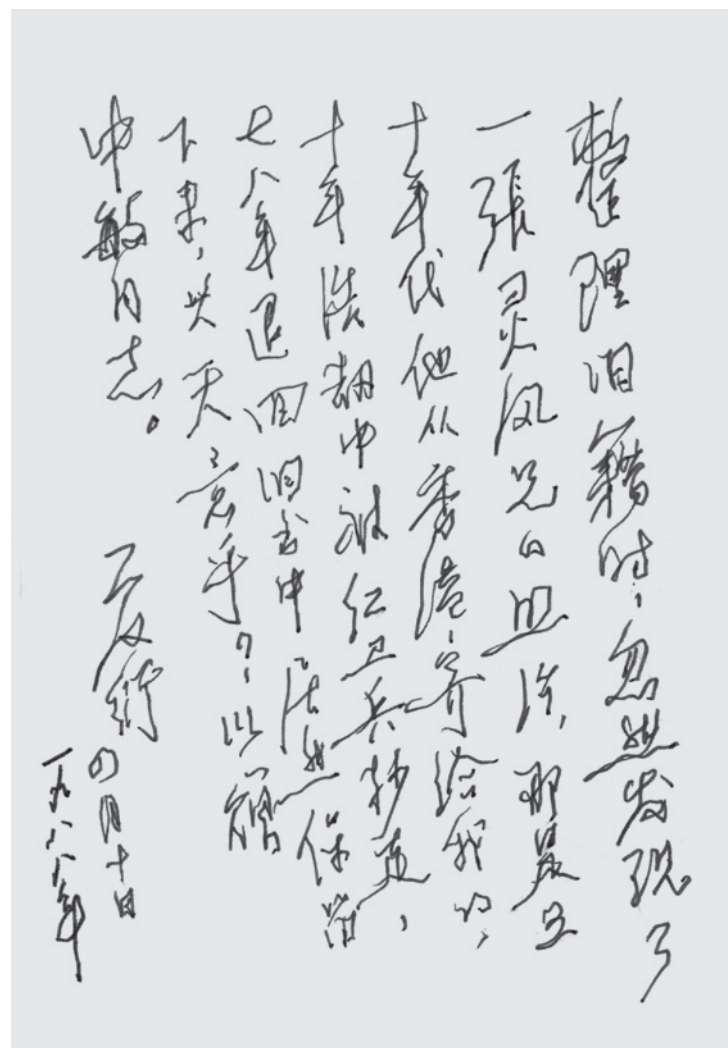 整理旧籍时，忽然发现了
一張灵凤兄的照片，那是五
十年代他从香港寄给我的，
十年浩劫中被红卫兵抄走，
七八年退回旧书中居然保留
下来，岂天意乎？以赠
中敏同志。
四月十日
一九八八年